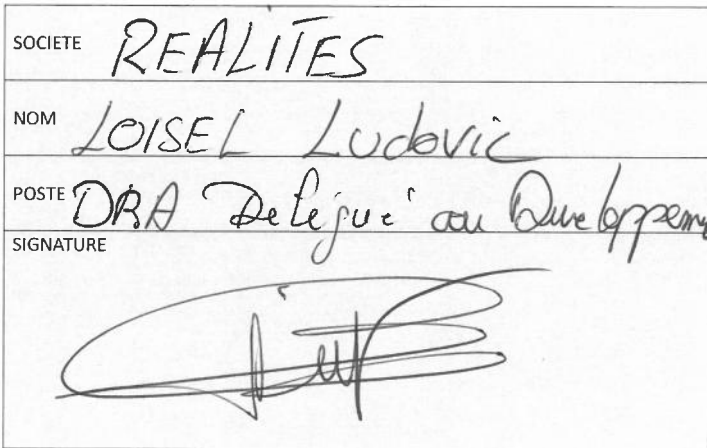 SOCIETE REALITES
NOM LOISEL Ludovic
POSTE DRA Délégué au Developpem
SIGNATURE